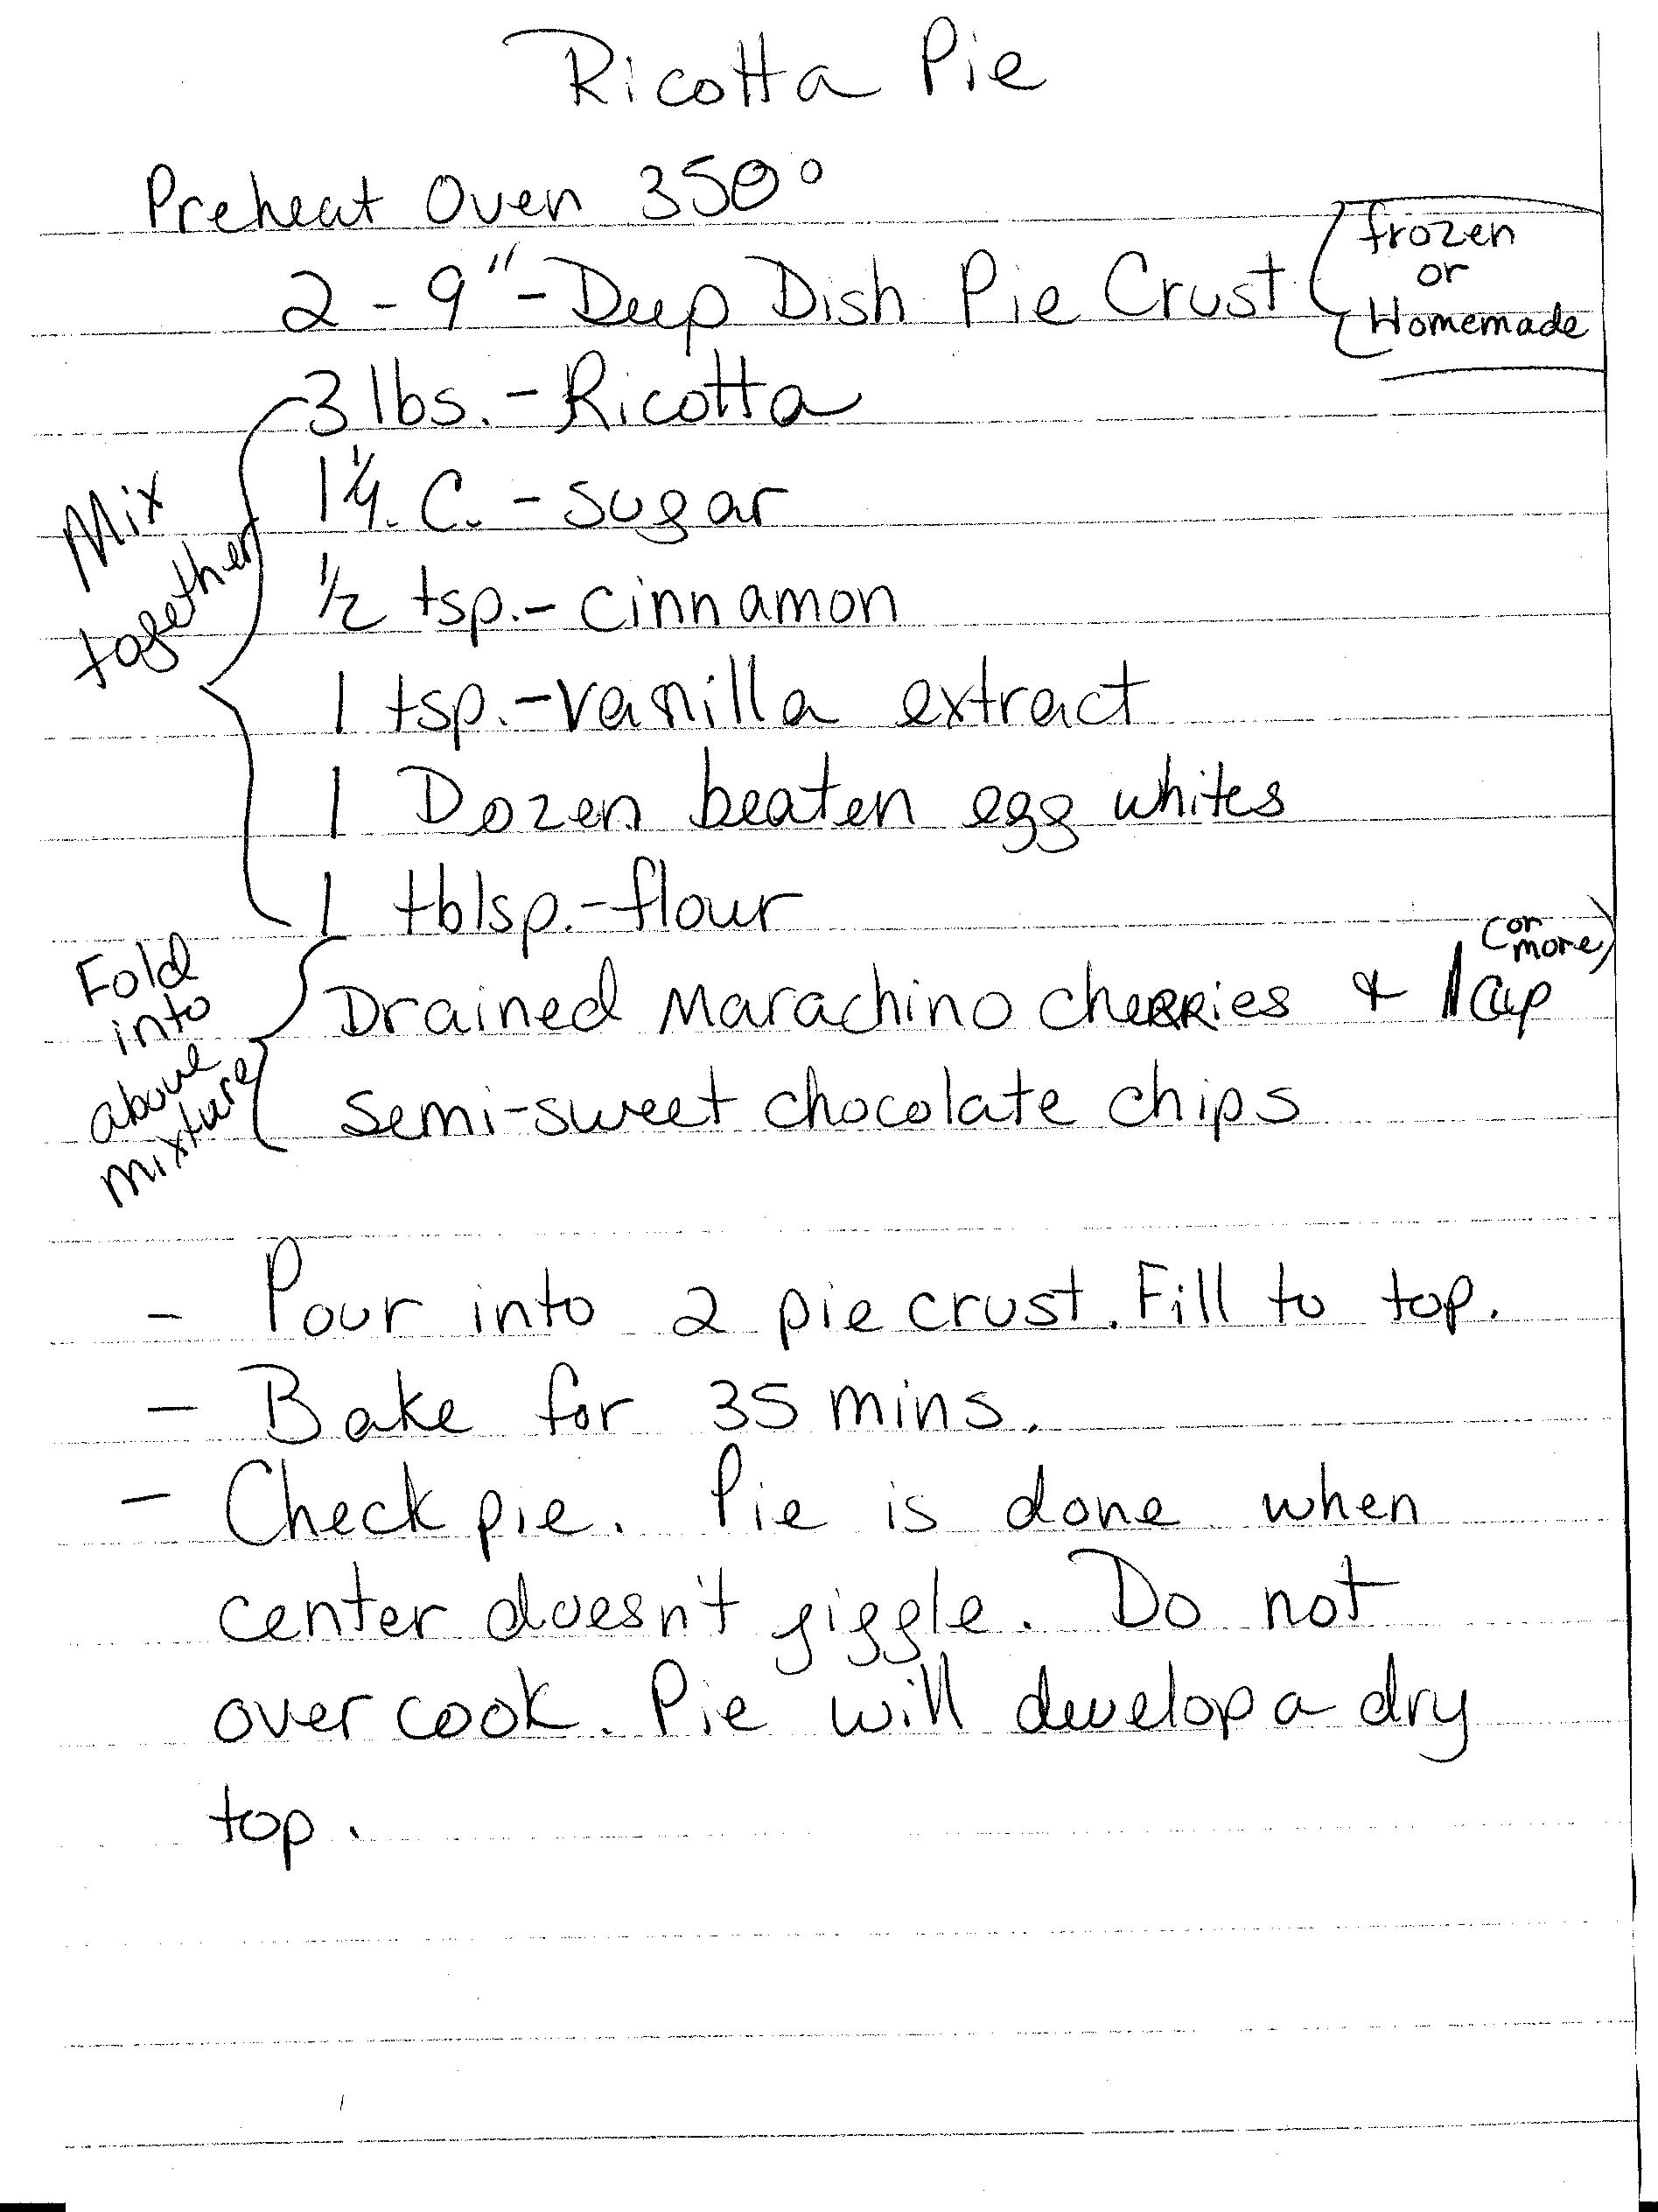 Ricotta Pie
Preheat Oven 350°
2 - 9" - Deep Dish Pie Crust
frozen
or
Homemade
Mix
together
3 lbs. - Ricotta
1 1/4. C. - sugar
1/2 tsp. - cinnamon
1 tsp. - vanilla extract
1 Dozen beaten egg whites
1 tblsp. - flour
Fold
into
above
mixture
(or
more)
Drained Marachino cherries & 1 Cup
semi-sweet chocolate chips
- Pour into 2 pie crust. Fill to top.
- Bake for 35 mins.
- Check pie. Pie is done when
center doesn't giggle. Do not
over cook. Pie will develop a dry
top.